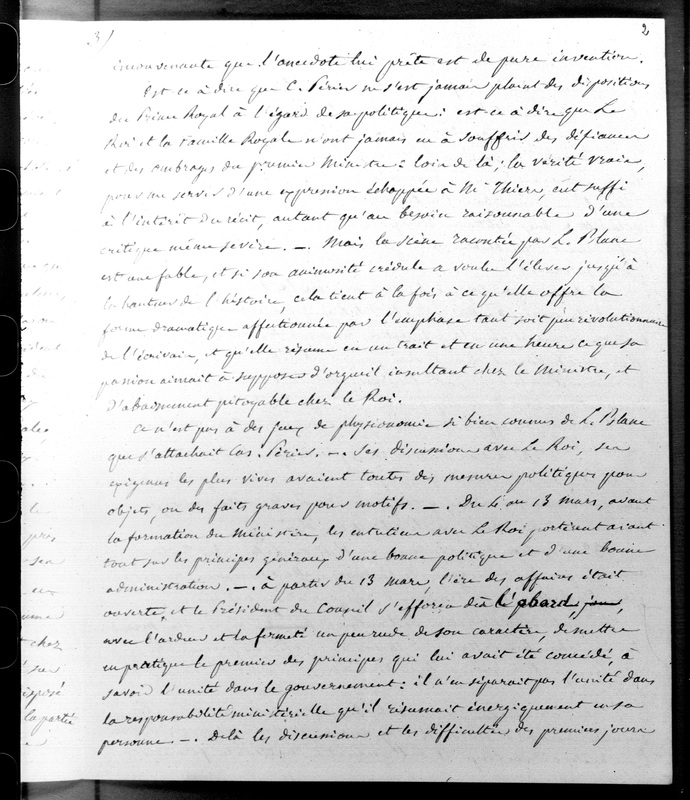 3/ 2
inconvenante que l'anecdote lui prête est de pure invention.
Est ce à dire que C. Périer ne s'est jamais plaint des dispositions
du Prince Royal à l'égard de sa politique : est ce à dire que Le
Roi et la famille Royale n'ont jamais eu à souffrir des défiances
et des ombrages du premier Ministre : loin de là ; la vérité vraie,
pour me servir d'une expression échappée à Mr Thiers, eût suffi
à l'intérêt du récit, autant qu'au besoin raisonnable d'une
critique même sevère. —. Mais la scène racontée par L. Blanc
est une fable, et si son animosité crédule a voulu l'élever jusqu'à
la hauteur de l'histoire, cela tient à la fois à ce qu'elle offre la
forme dramatique affectionnée par l'emphase tant soit peu révolutionnaire
de l'écrivain, et qu'elle résume en un trait et en une heure ce que sa
passion aimait à supposer d'orgueil insultant chez le Ministre, et
d'abaissement pitoyable chez le Roi.
Ce n'est pas à des jeux de physionomie si bien connus de L. Blanc
que s'attachait Cas. Périer. —. Ses discussions avec Le Roi, ses
exigences les plus vives avaient toutes des mesures politiques pour
objets, ou des faits graves pour motifs. —. Du 4 au 13 mars, avant
la formation du Ministère, les entretiens avec Le Roi portèrent avant
tout sur les principes généraux d'une bonne politique et d'une bonne
administration. —. à partir du 13 mars, l'ère des affaires était
ouverte, et le Président du Conseil s'efforça dès l'abord,
avec l'ardeur et la fermeté un peu rude de son caractère, de mettre
en pratique le premier des principes qui lui avait été concédé, à
savoir l'unité dans le gouvernement : il n'en séparait pas l'unité dans
la responsabilité ministérielle qu'il résumait énergiquement en sa
personne. —. De là les discussions et les difficultés des premiers jours